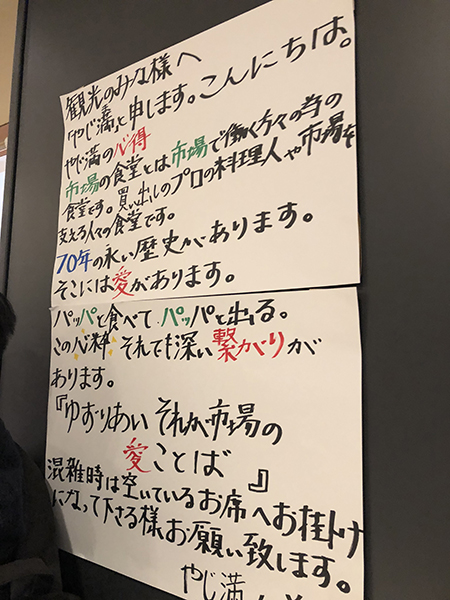 観光のみな様へ
「やじ満」と申します。こんにちは。
やじ満の心得
市場の食堂とは市場で働く方々の為の
食堂です。買い出しのプロの料理人や市場を
支える人々の食堂です。
70年の永い歴史があります。
そこには愛があります。
パッパと食べて パッパと出る。
この心粋 それでも深い繋がりが
あります。
『ゆずりあい それが市場の
愛ことば』
混雑時は空いているお席へお掛け
になって下さる様、お願い致します。
やじ満